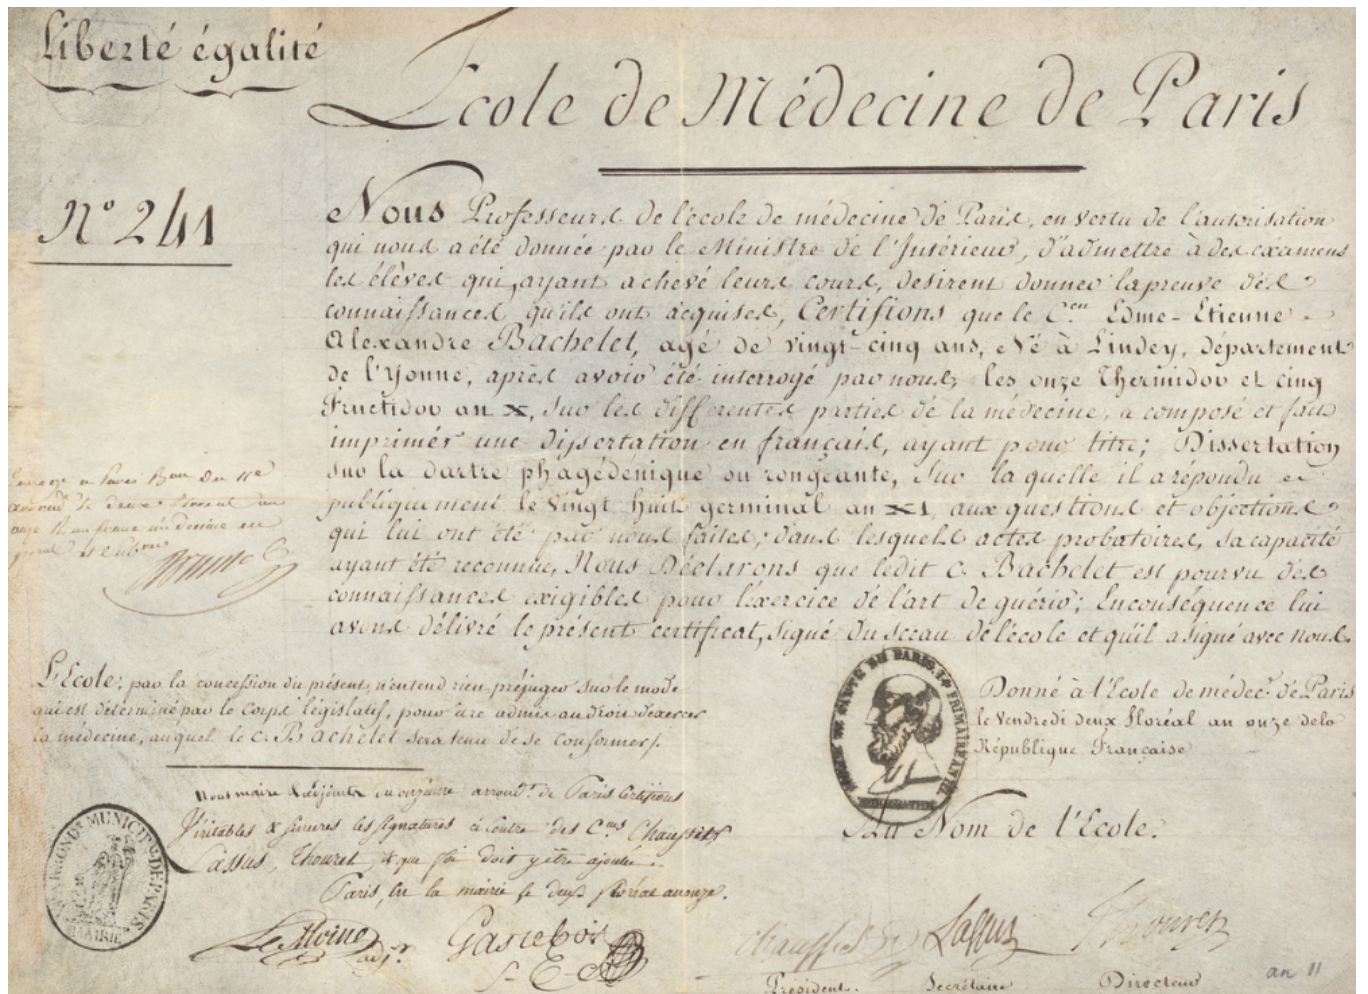 Liberté égalité
École de Médecine de Paris
Nº 241
Nous Professeurs de l'école de médecine de Paris, en vertu de l'autorisation
qui nous a été donnée par le Ministre de l'Intérieur, d'admettre à des examens
les élèves qui, ayant achevé leurs cours, desirent donner la preuve des
connaissances qu'ils ont acquises, Certifions que le C.en Edme-Etienne
Alexandre Bachelet, agé de vingt-cinq ans, né à Lindey, département
de l'Yonne, après avoir été interrogé par nous, les onze Thermidor et cinq
Fructidor an X, sur les differentes parties de la médecine, a composé et fait
imprimer une dissertation en français, ayant pour titre; Dissertation
sur la dartre phagédenique ou rongeante, sur la quelle il a répondu
publiquement le vingt huit germinal an XI, aux questions et objections
qui lui ont été par nous faites; dans lesquels actes probatoires, sa capacité
ayant été reconnue, Nous Déclarons que ledit c. Bachelet est pourvu des
connaissances exigibles pour l'exercice de l'art de guérir; Enconséquence lui
avons délivré le présent certificat, signé du sceau de l'école et qu'il a signé avec nous.
L'École, par la concession du présent, n'entend rien préjuger sur le mode
qui est déterminé par le Corps législatif, pour être admis au droit d'exercer
la médecine, auquel le c. Bachelet sera tenu de se conformer.
Donné à l'École de médec.e de Paris
le Vendredi deux floréal an onze de la
République Française
Au Nom de l'École.
Nous maire & adjoints du onzième arrond.t de Paris Certifions
Véritables & sincères les signatures ci contre des C.ens Chaussier
Lassus, Thouret & que foi doit y être ajoutée.
Paris, en la mairie le deux floréal an onze.
MUNICIP. DE PARIS
MAIRIE
LeMoine adj.t
Gastebois
Lassus
Thouret
Président.
Secrétaire
Directeur
an 11